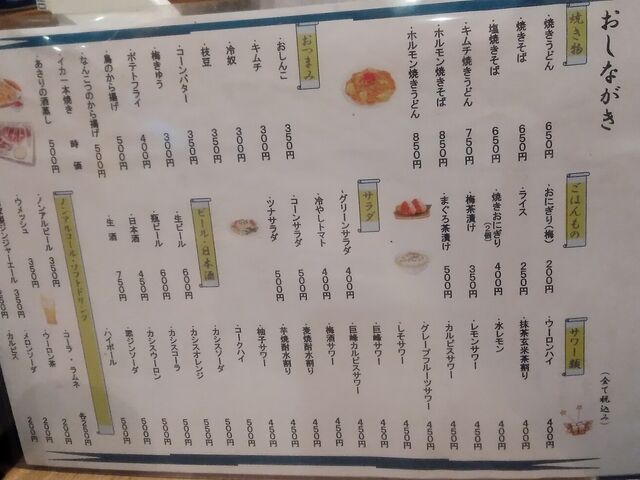 おしながき
(全て税込み)
焼き物
・焼きうどん 650円
・焼きそば 650円
・塩焼きそば 650円
・キムチ焼きうどん 750円
・ホルモン焼きそば 850円
・ホルモン焼きうどん 850円
おつまみ
・おしんこ 350円
・キムチ 300円
・冷奴 300円
・枝豆 350円
・コーンバター 350円
・梅きゅう 300円
・ポテトフライ 400円
・鳥のから揚げ 500円
・なんこつのから揚げ 500円
・イカ一本焼き 時価
・あさりの酒蒸し 500円
ごはんもの
・おにぎり(梅) 200円
・ライス 250円
・焼きおにぎり(2個) 400円
・梅茶漬け 350円
・まぐろ茶漬け 500円
サラダ
・グリーンサラダ 400円
・冷やしトマト 400円
・コーンサラダ 500円
・ツナサラダ 500円
ビール・日本酒
・生ビール 600円
・瓶ビール 600円
・日本酒 450円
・生酒 750円
ノンアルコール・ソフトドリンク
・ノンアルビール 350円
・ウメッシュ 350円
ジンジャーエール 250円
サワー類
・ウーロンハイ 400円
・抹茶玄米茶割り 400円
・水レモン 400円
・レモンサワー 450円
・カルピスサワー 450円
・グレープフルーツサワー 450円
・しそサワー 400円
・巨峰サワー 450円
・巨峰カルピスサワー 450円
・梅酒サワー 450円
・麦焼酎水割り 450円
・芋焼酎水割り 450円
・柚子サワー 450円
・コークハイ 500円
・カシスソーダ 500円
・カシスオレンジ 550円
・カシスコーラ 550円
・カシスウーロン 500円
・黒ジンソーダ 500円
・ハイボール 500円
・コーラ・ラムネ 各250円
・ウーロン茶 200円
・メロンソーダ 200円
・カルピス 250円